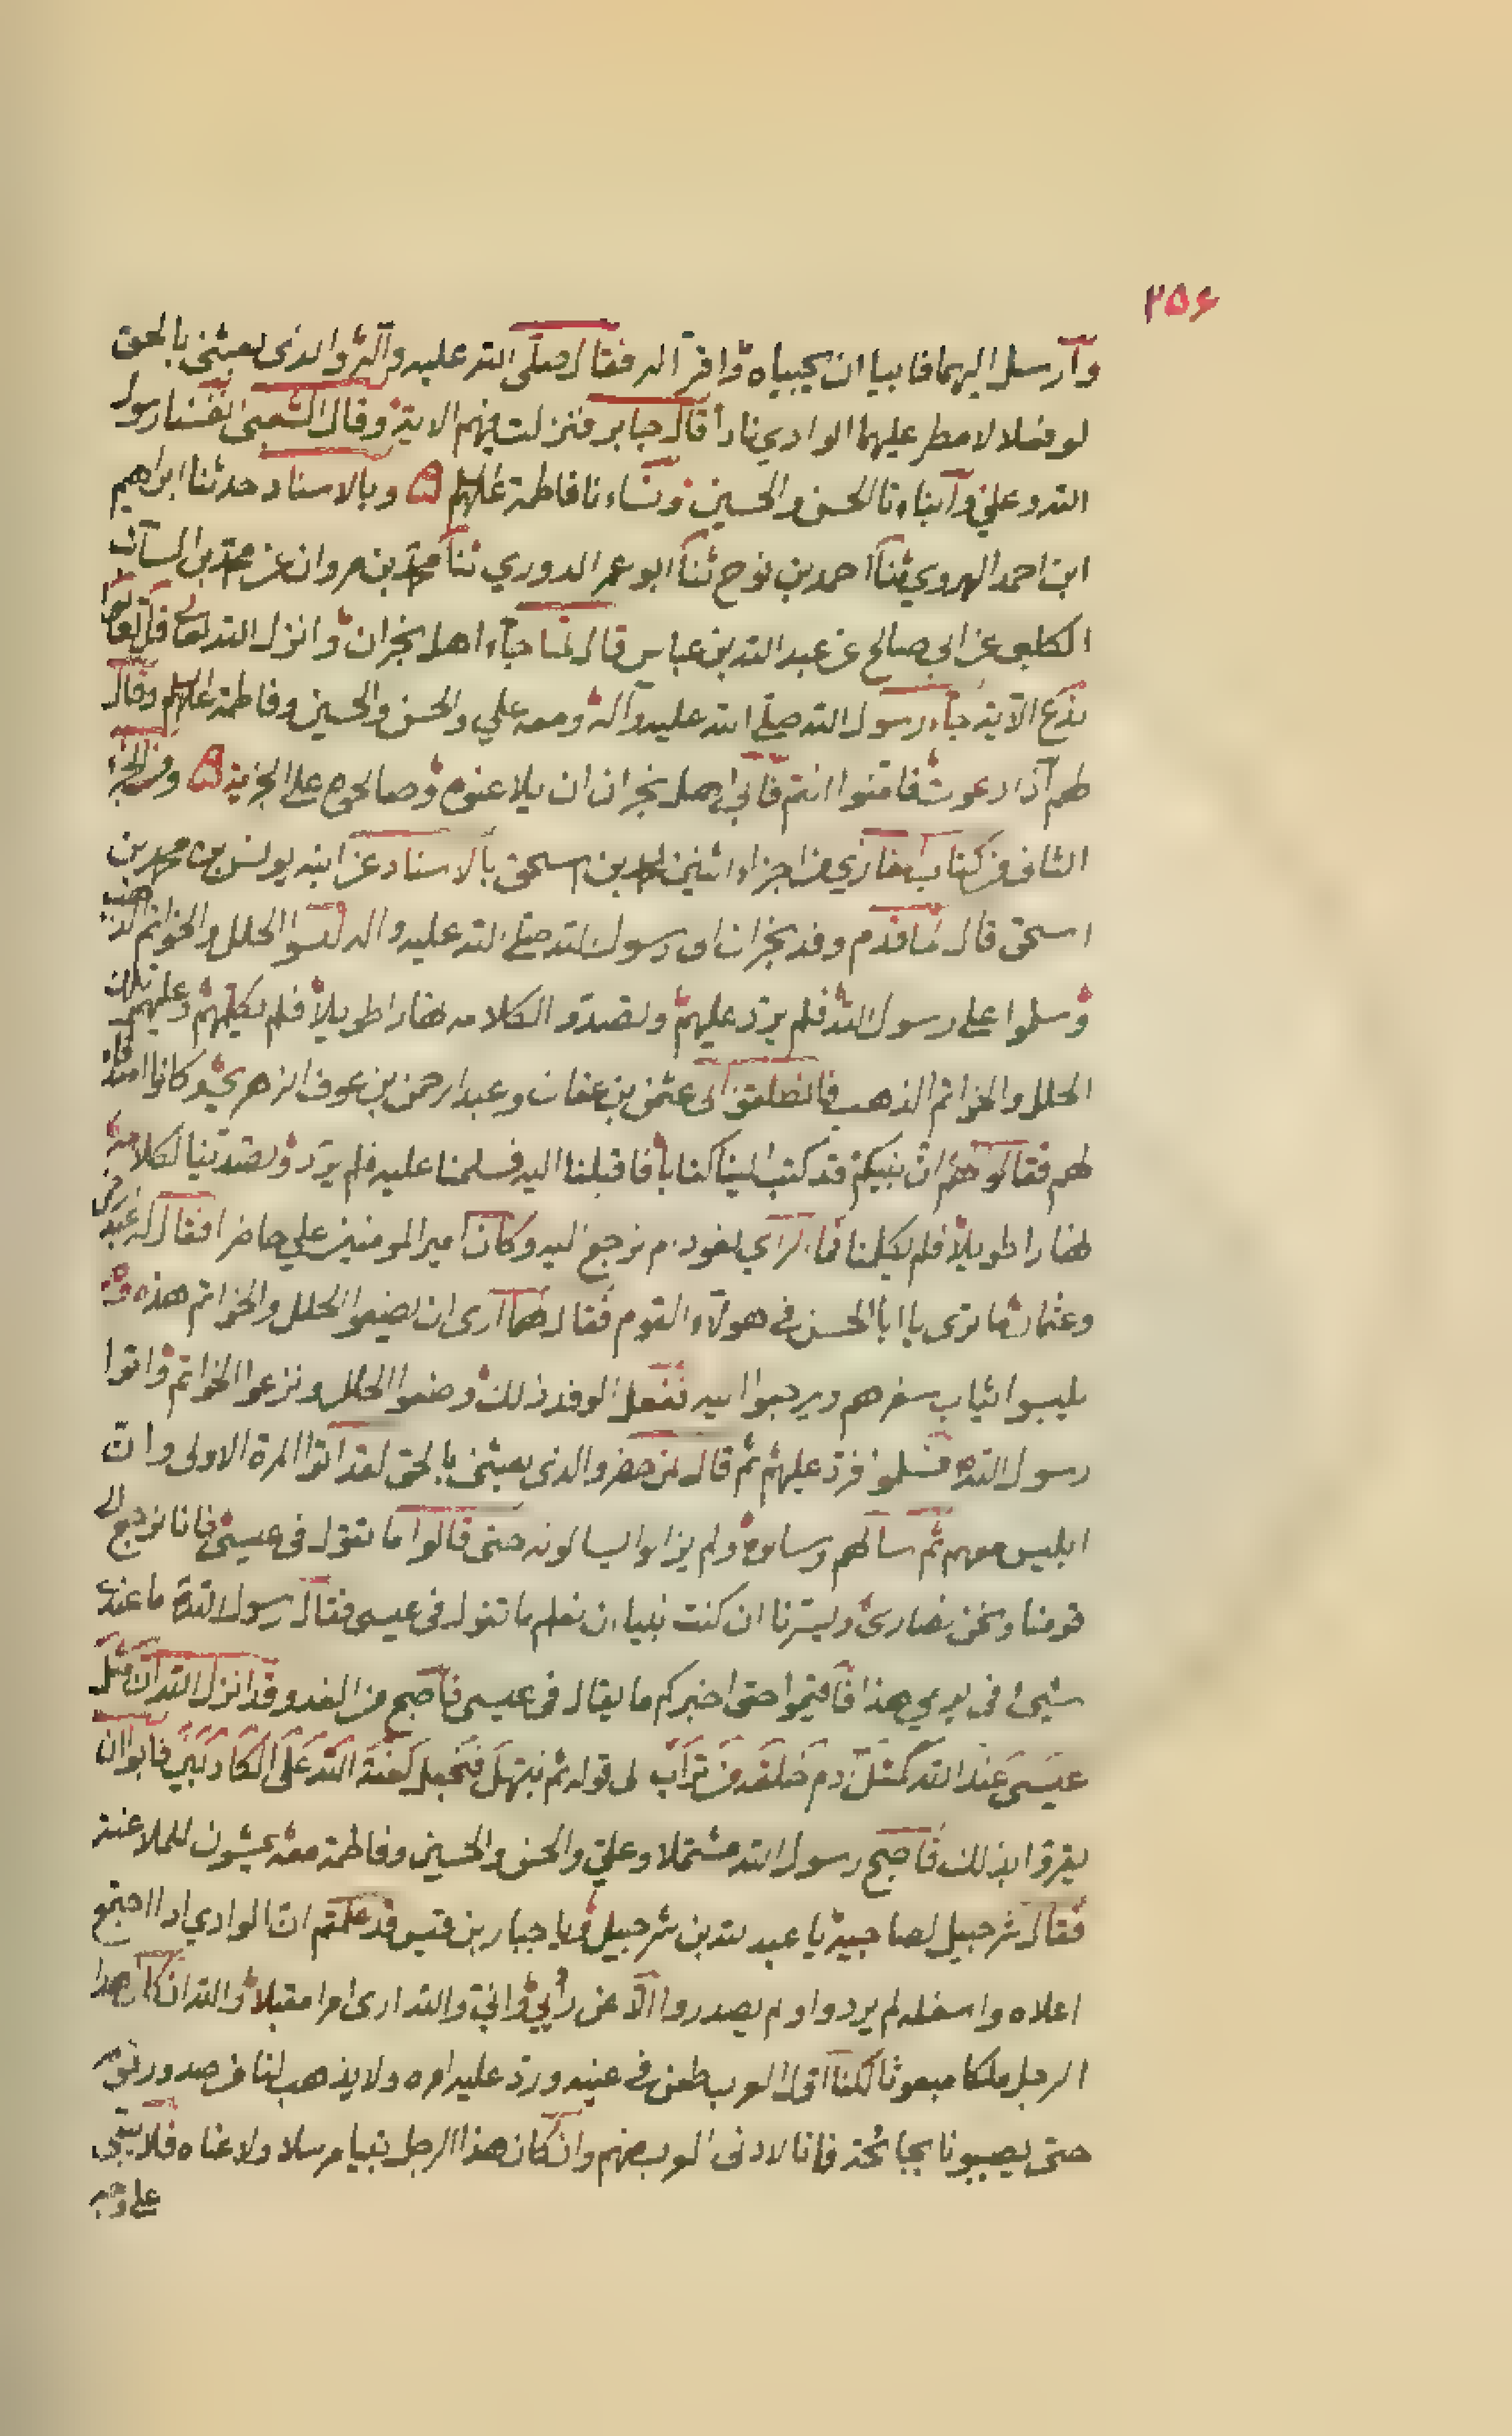 ۲۵۶
وأرسل اليهما فابيا ان يجيباه واقرا له فقال صلى الله عليه وآله والذى بعثنى بالحق
لو فعلا لامطر عليهما الوادي نارا قال جابر فنزلت فيهم الاية وقال الشعبى انفسنا رسول
الله وعلي وابناءنا الحسن والحسين ونساءنا فاطمة عليهم ۵ وبالاسناد حدثنا ابراهيم
ابن احمد الهروي ثنا احمد بن نوح ثنا ابو عمر الدوري ثنا محمد بن مروان عن محمد بن السائب
الكلبى عن ابى صالح عن عبد الله بن عباس قال لما جاء اهل نجران وانزل الله تعالى قل تعالوا
ندع الآية جاء رسول الله صلى الله عليه وآله ومعه علي والحسن والحسين وفاطمة عليهم وقال
لهم اذا دعوت فامنوا انتم فابى اهل نجران ان يلاعنوه وصالحوه على الجزية ۵ ومن الجزء
الثانى من كتاب المغازي من اجزاء اثنين بن اسحق بالاسناد عن ابنه يونس بن محمد بن
اسحق قال لما قدم وفد نجران الى رسول الله صلى الله عليه واله لبسوا الحلل والخواتم الذهب
وسلموا على رسول الله فلم يرد عليهم وتصدوا لكلامه نهارا طويلا فلم يكلمهم وعليهم تلك
الحلل والخواتم الذهب فانطلقوا الى عثمن بن عفان وعبد الرحمن بن عوف الزهري وكانوا
لهم فقالوا لهم ان نبيكم قد كتب الينا كتابا فاقبلنا اليه فسلمنا عليه فلم يرد وتصدينا لكلامه
نهارا طويلا فلم يكلمنا فما الراي نعود ام نرجع اليه وكان امير المومنين علي حاضرا فقال له عبد الرحمن
وعثمان ما ترى يا ابا الحسن فى هولاء القوم فقال لهما ارى ان يضعوا الحلل والخواتم هذه و
يلبسوا ثياب سفرهم ويرجعوا اليه ففعل الوفد ذلك وضعوا الحلل ونزعوا الخواتم واتوا
رسول الله فسلموا فرد عليهم ثم قال لمن حضر والذى بعثنى بالحق لقد اتوا المرة الاولى وان
ابليس معهم ثم سالهم وسالوه ولم يزالوا يسالونه حتى قالوا ما تقول فى عيسى فانا نرجع الى
قومنا ونحن نصارى وليسرنا ان كنت نبيا ان نعلم ما تقول فى عيسى فقال رسول الله ما عندى
شيئ فى يومي هذا فاقيموا حتى اخبركم ما يقال فى عيسى فاصبح من الغد وقد انزل الله ان مثل
عيسى عند الله كمثل ادم خلقه من تراب الى قوله ثم نبتهل فنجعل لعنة الله على الكاذبين فابوا ان
يقروا بذلك فاصبح رسول الله مشتملا وعلي والحسن والحسين وفاطمة معه يمشون للملاعنة
فقال شرحبيل لصاحبيه يا عبد الله بن شرحبيل ويا جبار بن قيس قد علمتم ان الوادي اذا اجتمع
اعلاه واسفله لم يردوا ولم يصدروا الا عن رأيي وانى والله ارى امرا مقبلا والله ان كان هذا
الرجل ملكا مبعوثا لكنا اول العرب طعن فى عينه ورد عليه امره ولا يذهب لنا من صدور قومه
حتى يصيبونا بجائحة فانا لادنى العرب منهم وان كان هذا الرجل نبيا مرسلا ولاعناه فلا يبقى
على وجه